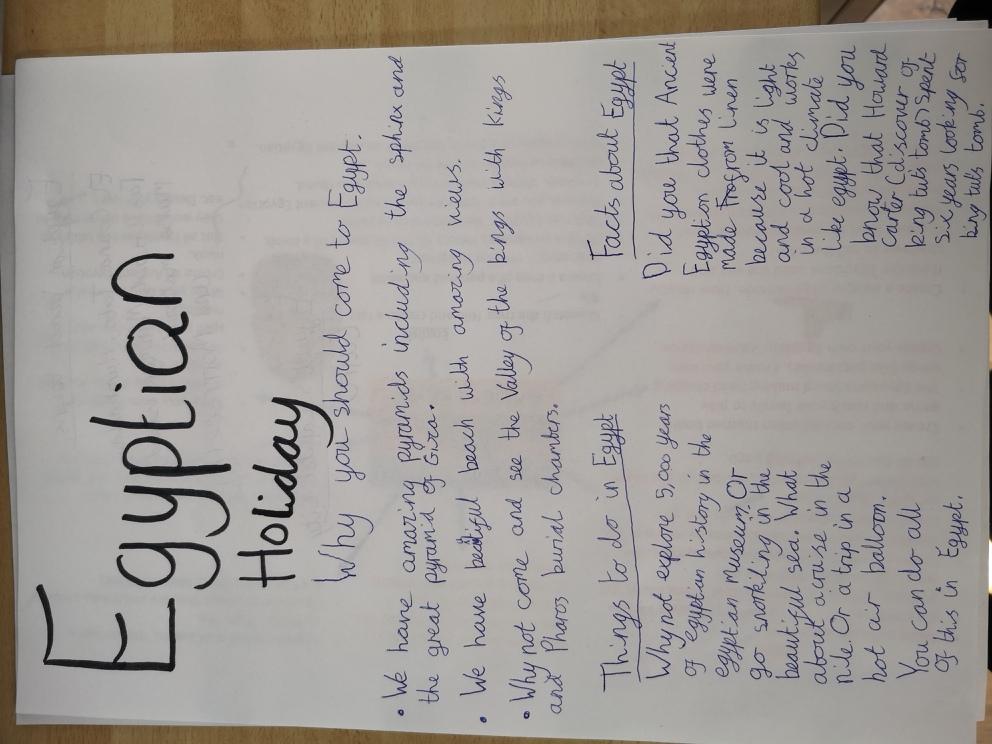 Egyptian
Holiday
Why you should come to Egypt.
• We have amazing pyramids including the sphinx and
the great pyramid of Giza.
• We have beatiful beach with amazing views.
• Why not come and see the Valley of the kings with Kings
and Pharos burial chambers.
Things to do in Egypt
Why not explore 5,000 years
of egyptian history in the
egyptian museum. Or
go snorkiling in the
beautiful sea. What
about acruise in the
nile. Or a trip in a
hot air balloon.
You can do all
of this in Egypt.
Facts about Egypt
Did you that Ancient
Egyption clothes were
made from linen
because it is light
and cool and works
in a hot climate
like egypt. Did you
know that Howard
Carter (discover of
king tuts tomb) spent
six years looking for
king tuts tomb.